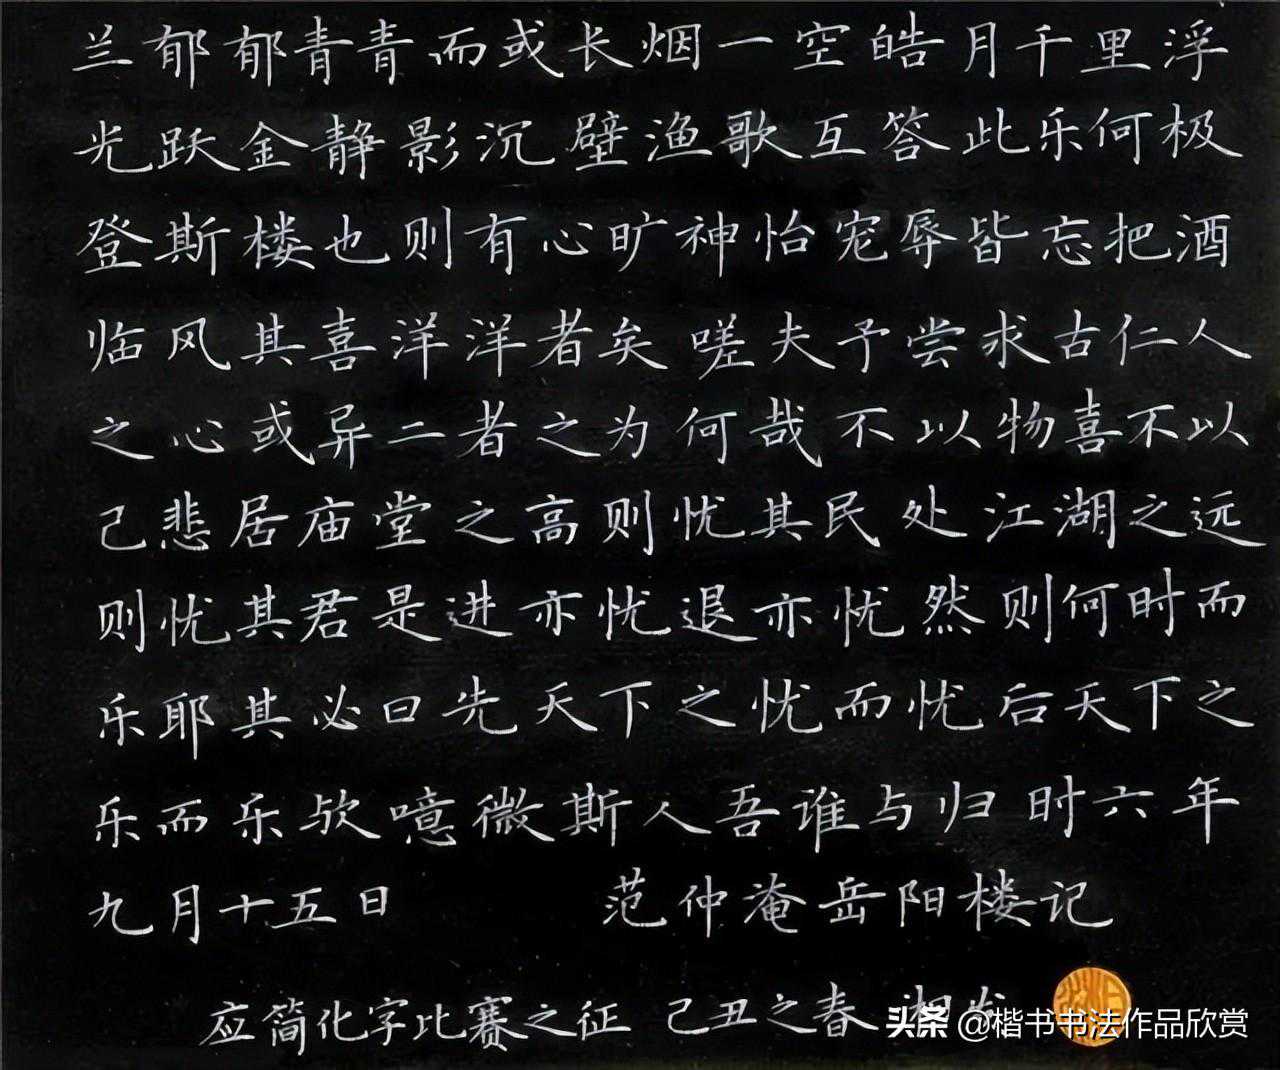 兰郁郁青青而或长烟一空皓月千里浮
光跃金静影沉壁渔歌互答此乐何极
登斯楼也则有心旷神怡宠辱皆忘把酒
临风其喜洋洋者矣嗟夫予尝求古仁人
之心或异二者之为何哉不以物喜不以
己悲居庙堂之高则忧其民处江湖之远
则忧其君是进亦忧退亦忧然则何时而
乐耶其必曰先天下之忧而忧后天下之
乐而乐欤噫微斯人吾谁与归时六年
九月十五日 范仲淹岳阳楼记
应简化字比赛之征 己丑之春
头条 @楷书书法作品欣赏